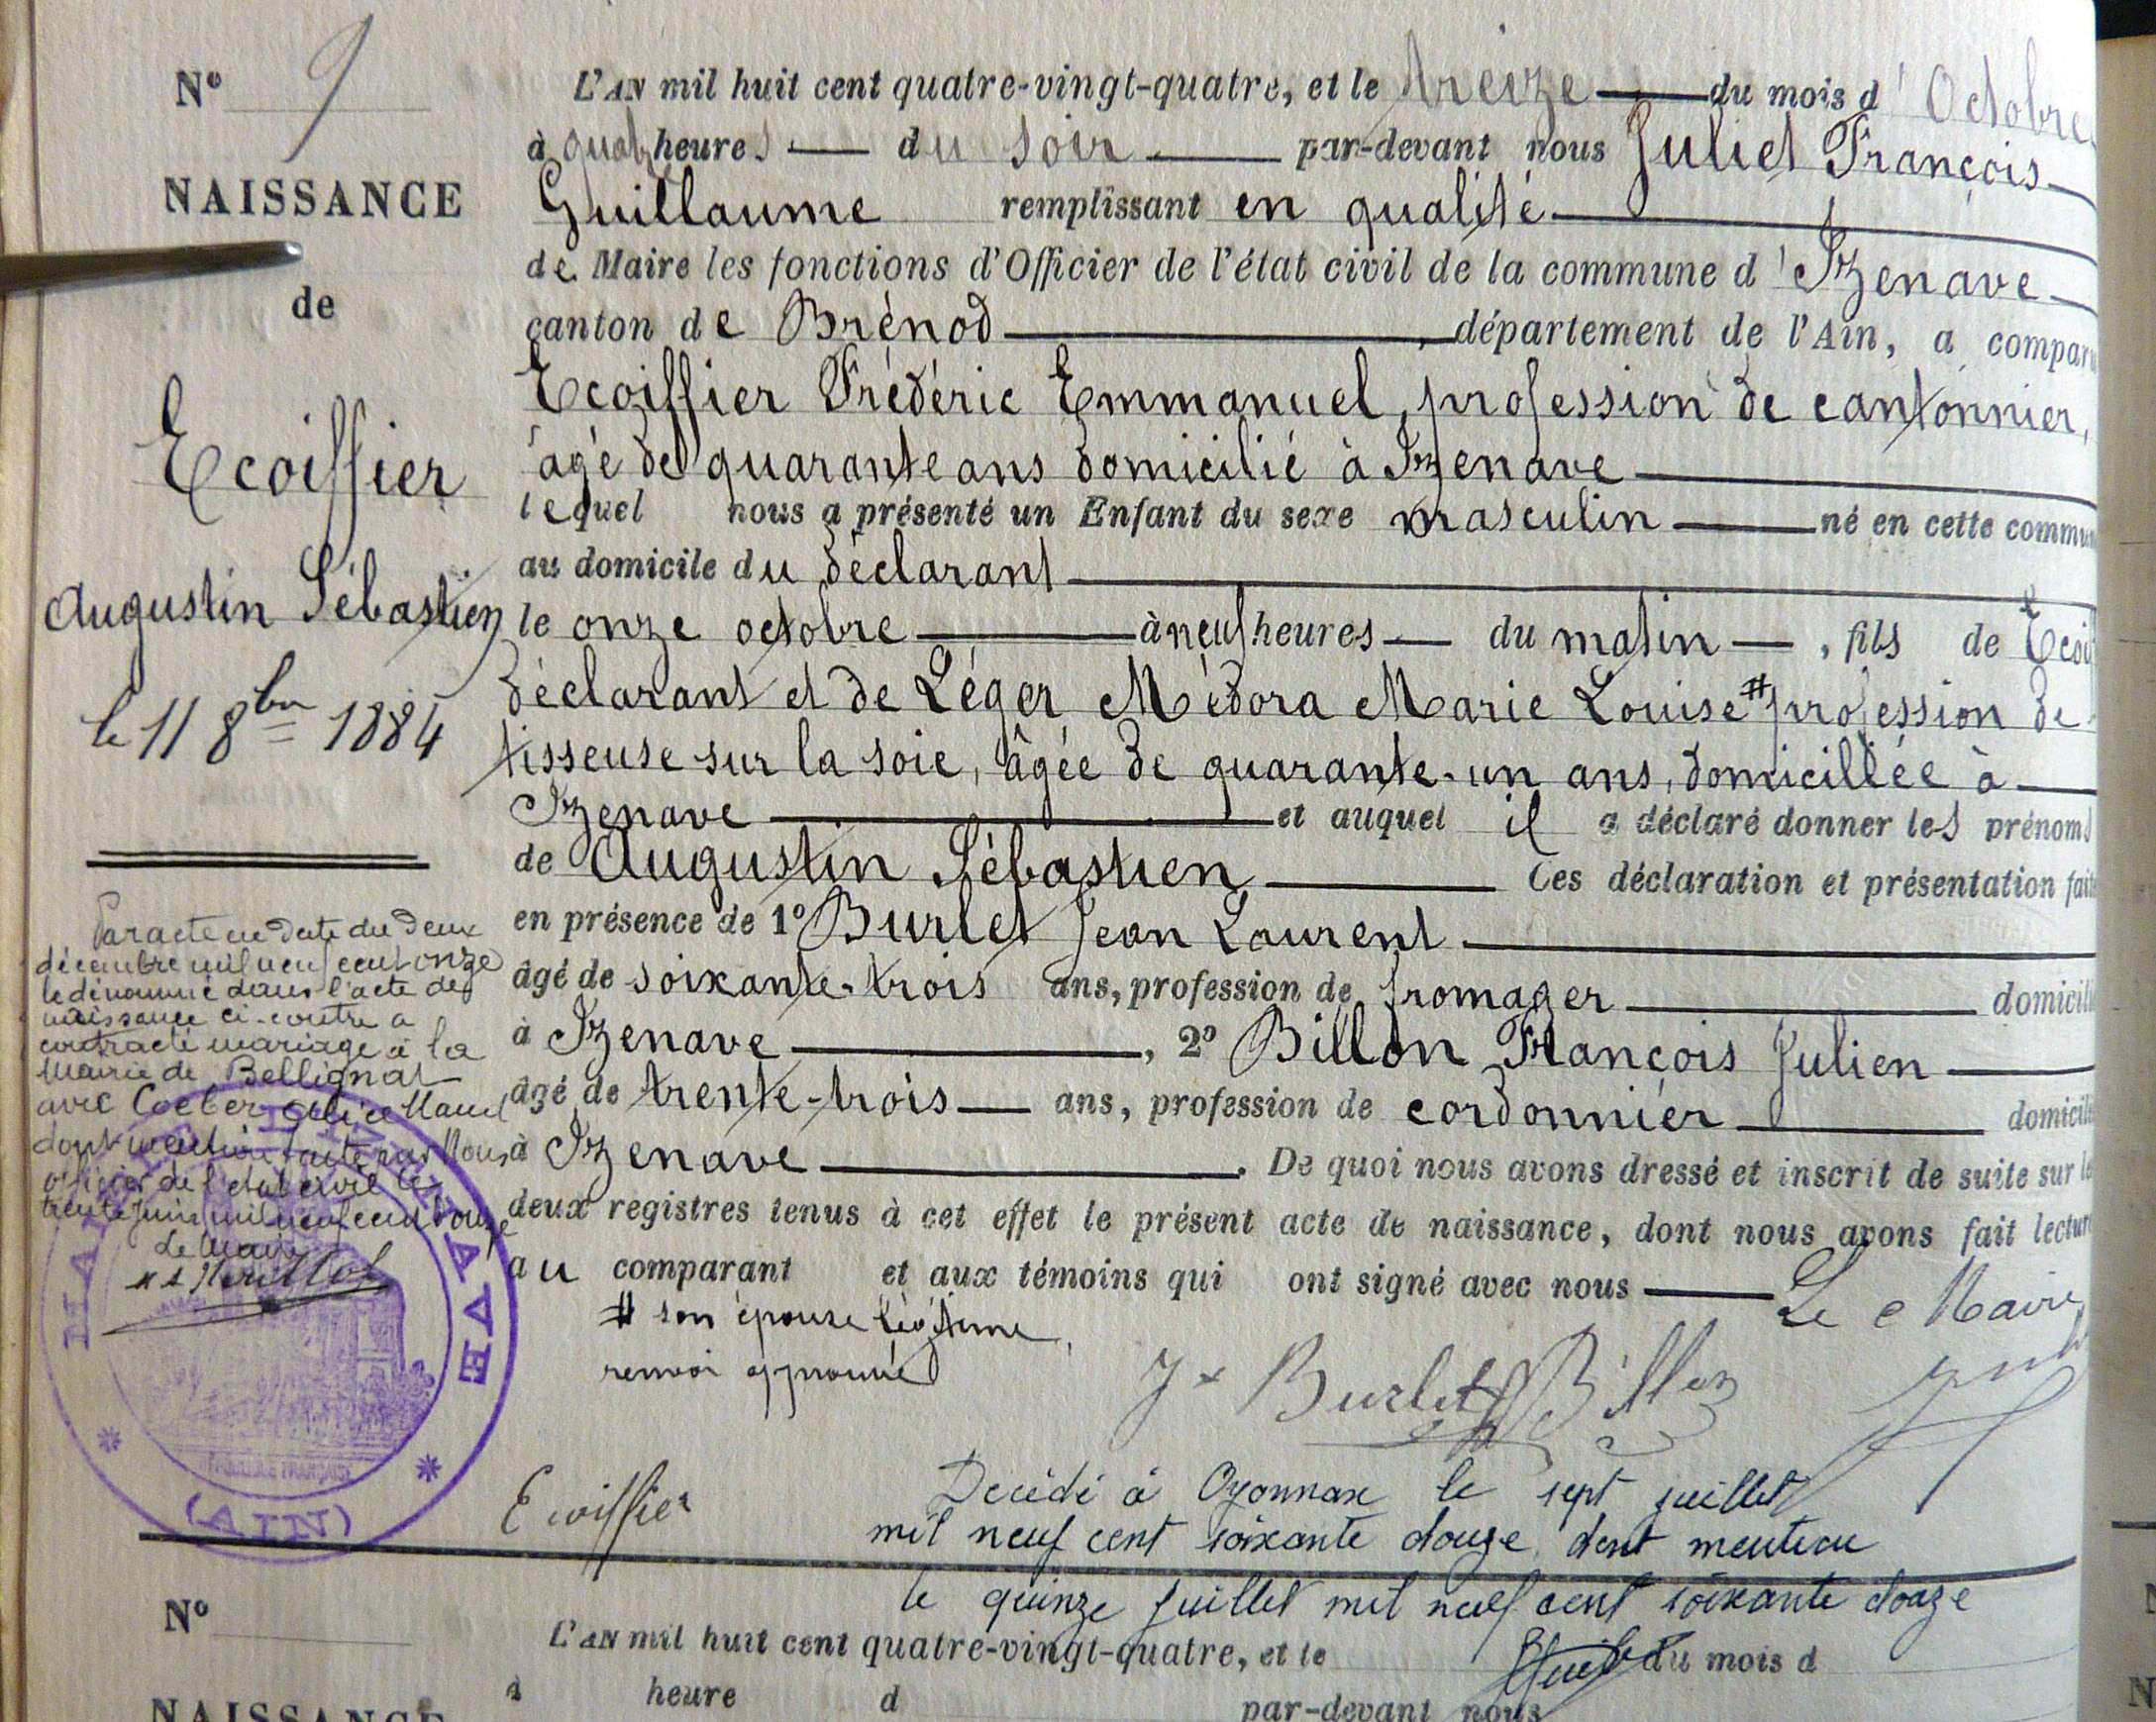 N° 9
NAISSANCE
de
Ecoiffier
Augustin Sébastien
le 11 8bre 1884
Par acte en date du deux
décembre mil neuf cent onze
le dénommé dans l'acte de
naissance ci-contre a
contracté mariage à la
Mairie de Bellignat
avec Coeber Alice Maud
dont mention faite par Nous
officier de l'état civil le
trente juin mil neuf cent douze
Le Maire
L'AN mil huit cent quatre-vingt-quatre, et le treize du mois d'Octobre
à quatre heures du soir par-devant nous Juliet François
Guillaume remplissant en qualité
de Maire les fonctions d'Officier de l'état civil de la commune d'Izenave
canton de Brénod, département de l'Ain, a comparu
Ecoiffier Frédéric Emmanuel, profession de cantonnier,
âgé de quarante ans domicilié à Izenave
lequel nous a présenté un Enfant du sexe masculin né en cette commu
au domicile du déclarant
le onze octobre à neuf heures du matin, fils de Ecoi
déclarant et de Léger Médora Marie Louise # profession de
tisseuse sur la soie, âgée de quarante-un ans, domicillée à
Izenave et auquel il a déclaré donner les prénoms
de Augustin Sébastien Ces déclaration et présentation fait
en présence de 1° Burlet Jean Laurent
âgé de soixante-trois ans, profession de fromager domicili
à Izenave, 2° Billon François Julien
âgé de trente-trois ans, profession de cordonnier domicili
à Izenave. De quoi nous avons dressé et inscrit de suite sur le
deux registres tenus à cet effet le présent acte de naissance, dont nous avons fait lecture
au comparant et aux témoins qui ont signé avec nous
Le Maire
# son épouse légitime,
renvoi approuvé
Burlet Billon
Ecoiffier
Décédé à Oyonnax le sept juillet
mil neuf cent soixante douze dont mention
le quinze juillet mil neuf cent soixante douze
IZENAVE
(AIN)
RÉPUBLIQUE FRANÇAISE
N°
NAISSANCE
L'AN mil huit cent quatre-vingt-quatre, et le du mois d
à heure d par-devant nous